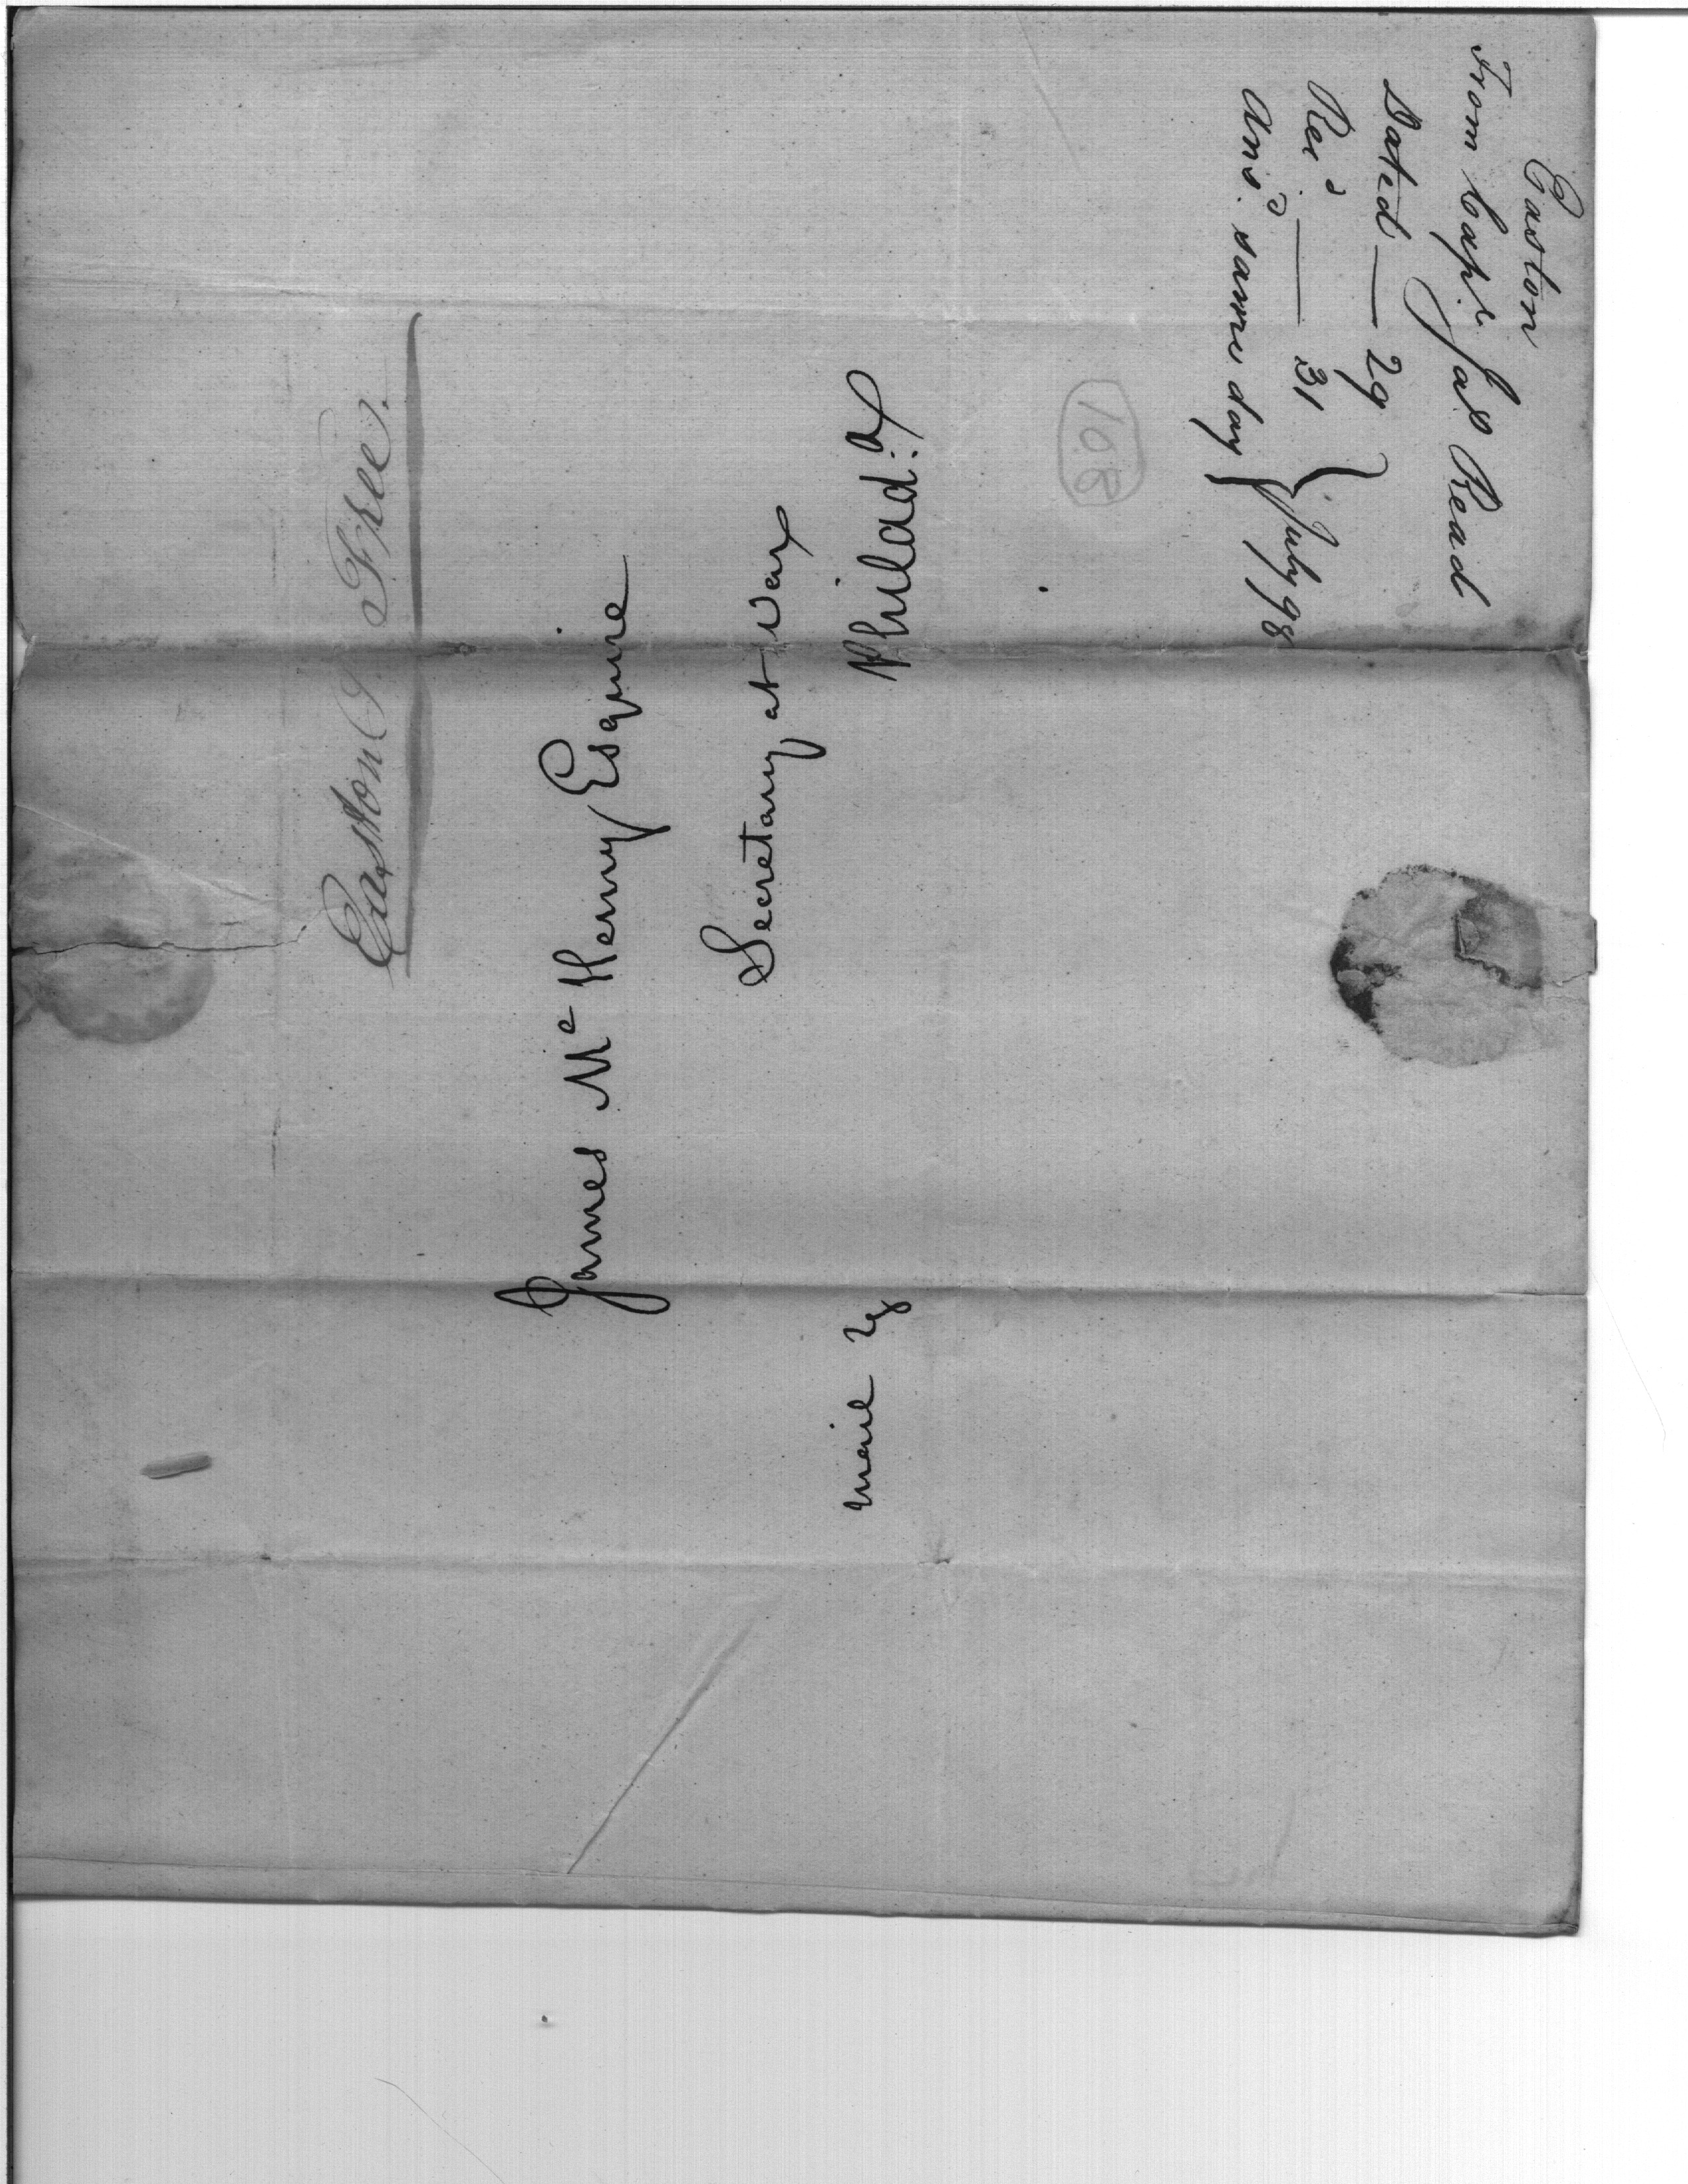 Easton
From Capt. Jas Read
Dated — 29
Recd. — 31
Ansd. same day } July 98
108
Easton P. Free.
James McHenry Esquire
Secretary at War
Philada:
mail